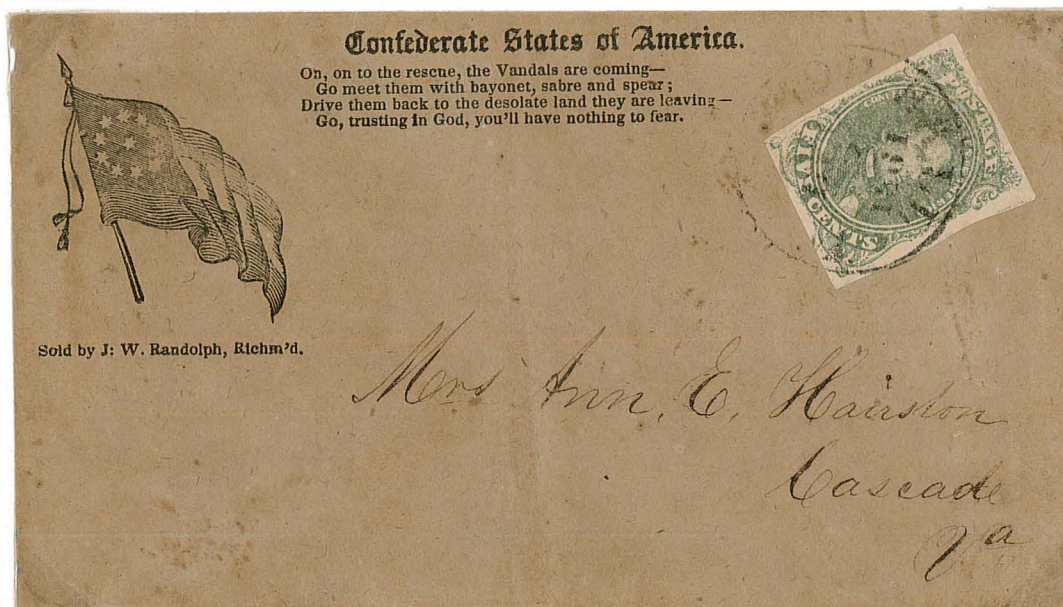 Confederate States of America.
On, on to the rescue, the Vandals are coming—
Go meet them with bayonet, sabre and spear;
Drive them back to the desolate land they are leaving—
Go, trusting in God, you'll have nothing to fear.
POSTAGE
CENTS
Sold by J: W. Randolph, Richm'd.
Mrs Ann. E. Hairston
Cascade
Va